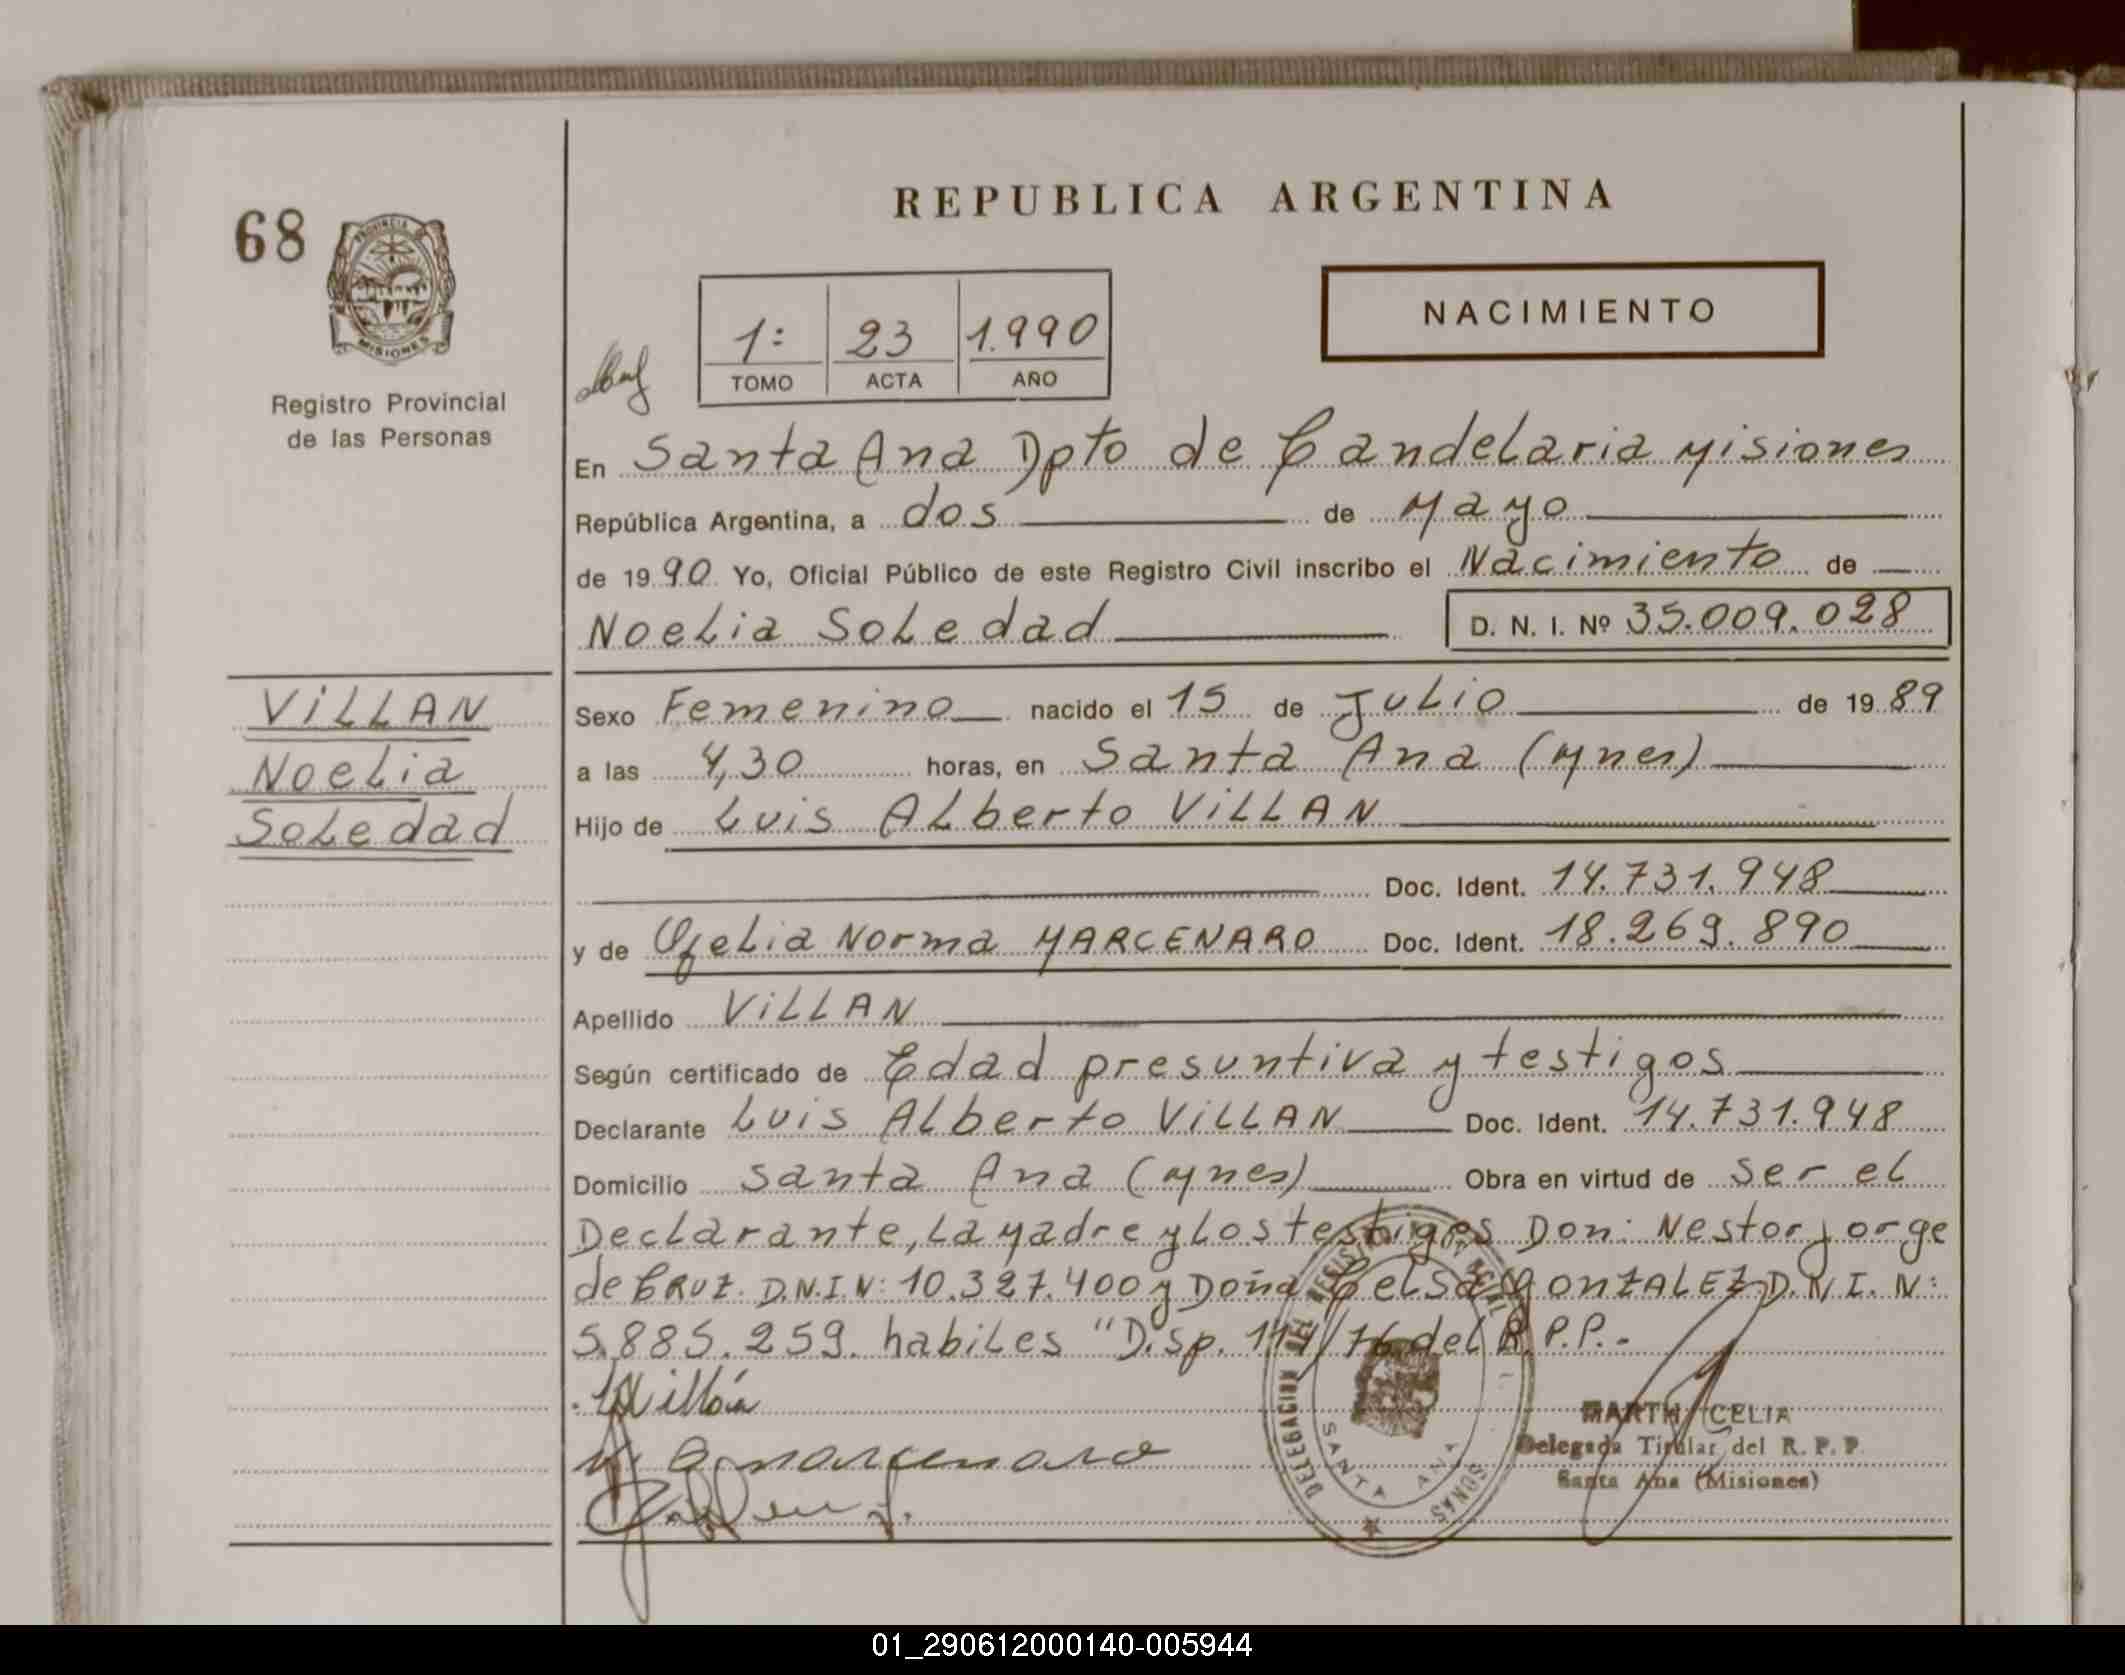 REPUBLICA ARGENTINA
68
PROVINCIA DE
MISIONES
Registro Provincial
de las Personas
1: 23 1.990
TOMO ACTA AÑO
NACIMIENTO
En Santa Ana Dpto de Candelaria Misiones
República Argentina, a dos de Mayo
de 1990 Yo, Oficial Público de este Registro Civil inscribo el Nacimiento de
Noelia Soledad D. N. I. Nº 35.009.028
VILLAN
Noelia
Soledad
Sexo Femenino nacido el 15 de Julio de 1989
a las 4,30 horas, en Santa Ana (Mnes)
Hijo de Luis Alberto VILLAN
Doc. Ident. 14.731.948
y de Ofelia Norma MARCENARO Doc. Ident. 18.269.890
Apellido VILLAN
Según certificado de Edad presuntiva y testigos
Declarante Luis Alberto VILLAN Doc. Ident. 14.731.948
Domicilio Santa Ana (Mnes) Obra en virtud de ser el
Declarante, La Madre y Los testigos Don: Nestor Jorge
de CRUZ. D.N.I.N: 10.327.400 y Doña Celsa GONZALEZ D.N.I.N:
5.885.259. habiles "Disp. 114/76 del R.P.P.-
Villán
O. marcenaro
DELEGACION DEL REGISTRO
SANTA ANA
MARTH CELIA
Delegada Titular del R. P. P.
Santa Ana (Misiones)
01_290612000140-005944